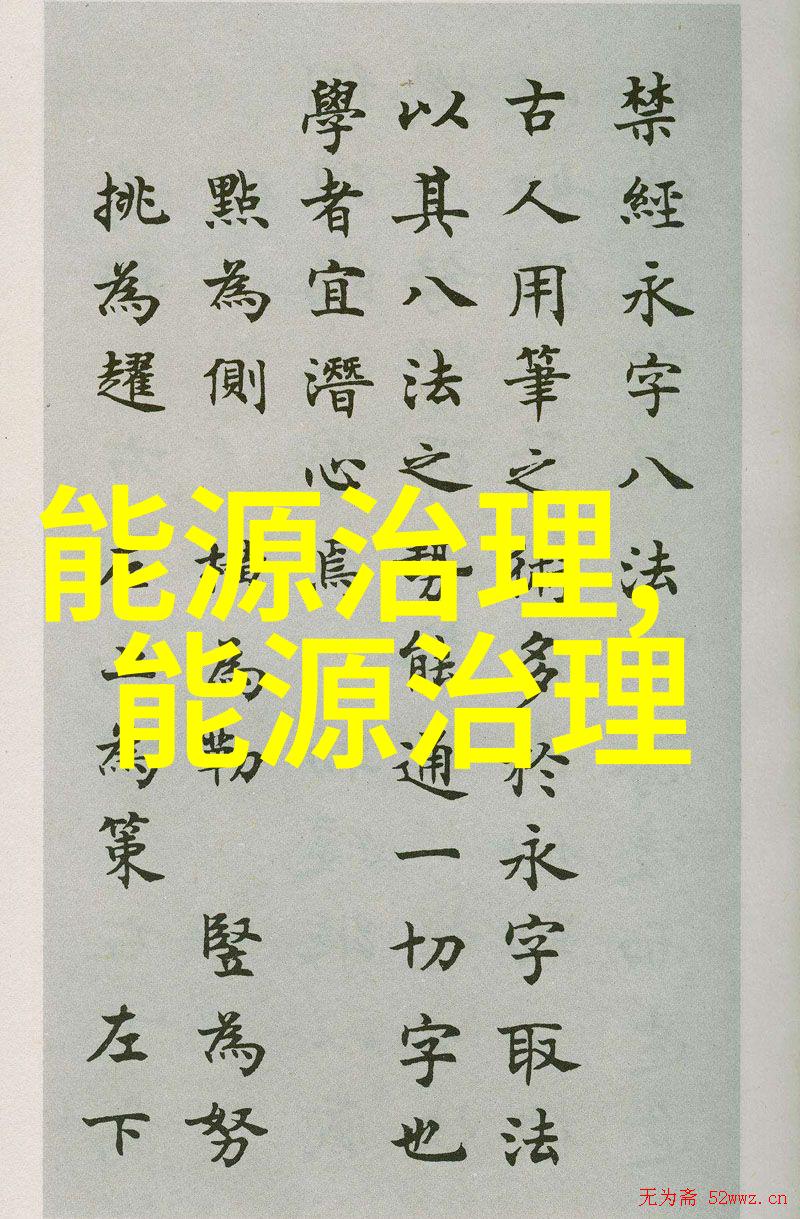 禁經永字八法
古人用筆之術多於永字取法
以其八法之勢能通一切字也
學者宜潛心焉
點為側 橫為勒 豎為努
挑為趯 左上為策 左下
能源治理,
能源治理
无为斋 52wwz.cn